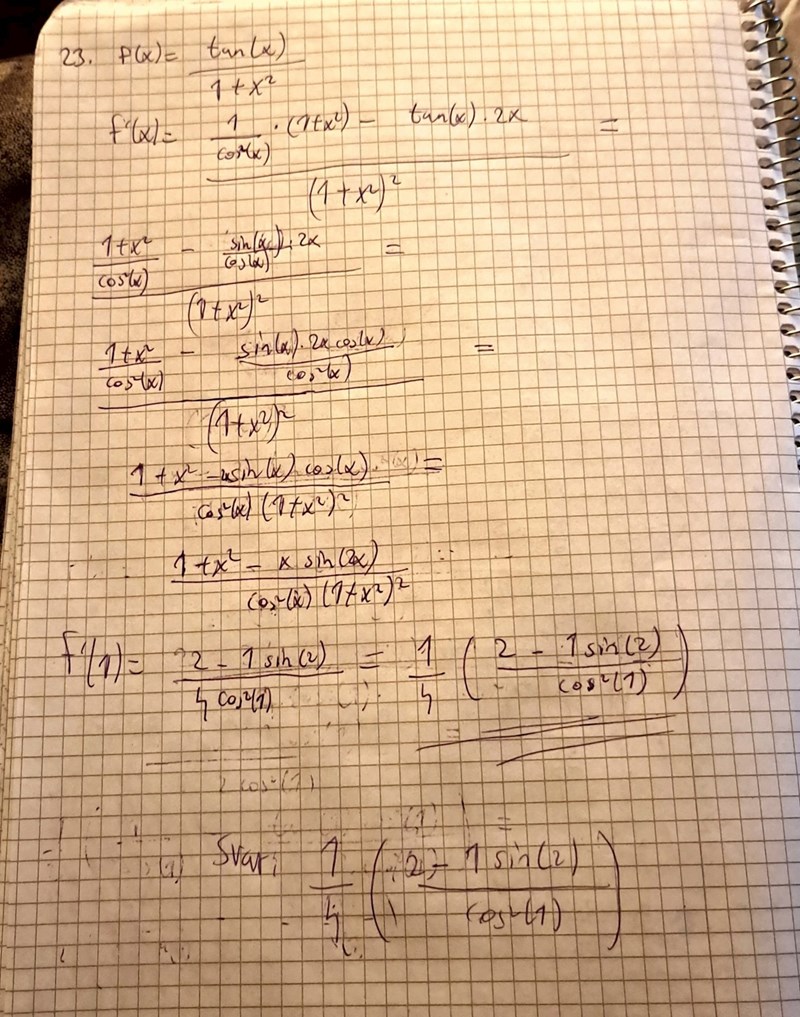 23. f(x) = tan(x) / (1+x²)
f'(x) = (1/cos²(x) · (1+x²) − tan(x) · 2x) / (1+x²)² =
((1+x²)/cos²(x) − sin(x)/cos(x) · 2x) / (1+x²)² =
((1+x²)/cos²(x) − (sin(x) · 2x cos(x))/cos²(x)) / (1+x²)² =
(1+x² − 2x sin(x) cos(x)) / (cos²(x) (1+x²)²) =
(1+x² − x sin(2x)) / (cos²(x) (1+x²)²)
f'(1) = (2 − 1 sin(2)) / (4 cos²(1)) = 1/4 ((2 − 1 sin(2)) / cos²(1))
2 cos²(1)
Svar: 1/4 ((2 − 1 sin(2)) / cos²(1))